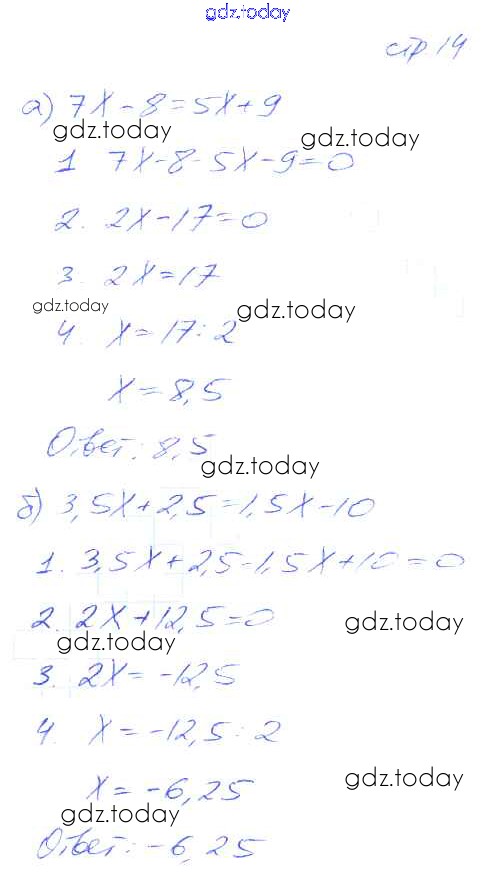 gdz.today
стр 14
а) 7x - 8 = 5x + 9
gdz.today
gdz.today
1 7x - 8 - 5x - 9 = 0
2. 2x - 17 = 0
3. 2x = 17
gdz.today
gdz.today
4. x = 17 : 2
x = 8,5
Ответ: 8,5
gdz.today
б) 3,5x + 2,5 = 1,5x - 10
1. 3,5x + 2,5 - 1,5x + 10 = 0
2. 2x + 12,5 = 0
gdz.today
gdz.today
3. 2x = -12,5
4. x = -12,5 : 2
gdz.today
x = -6,25
gdz.today
Ответ: -6,25